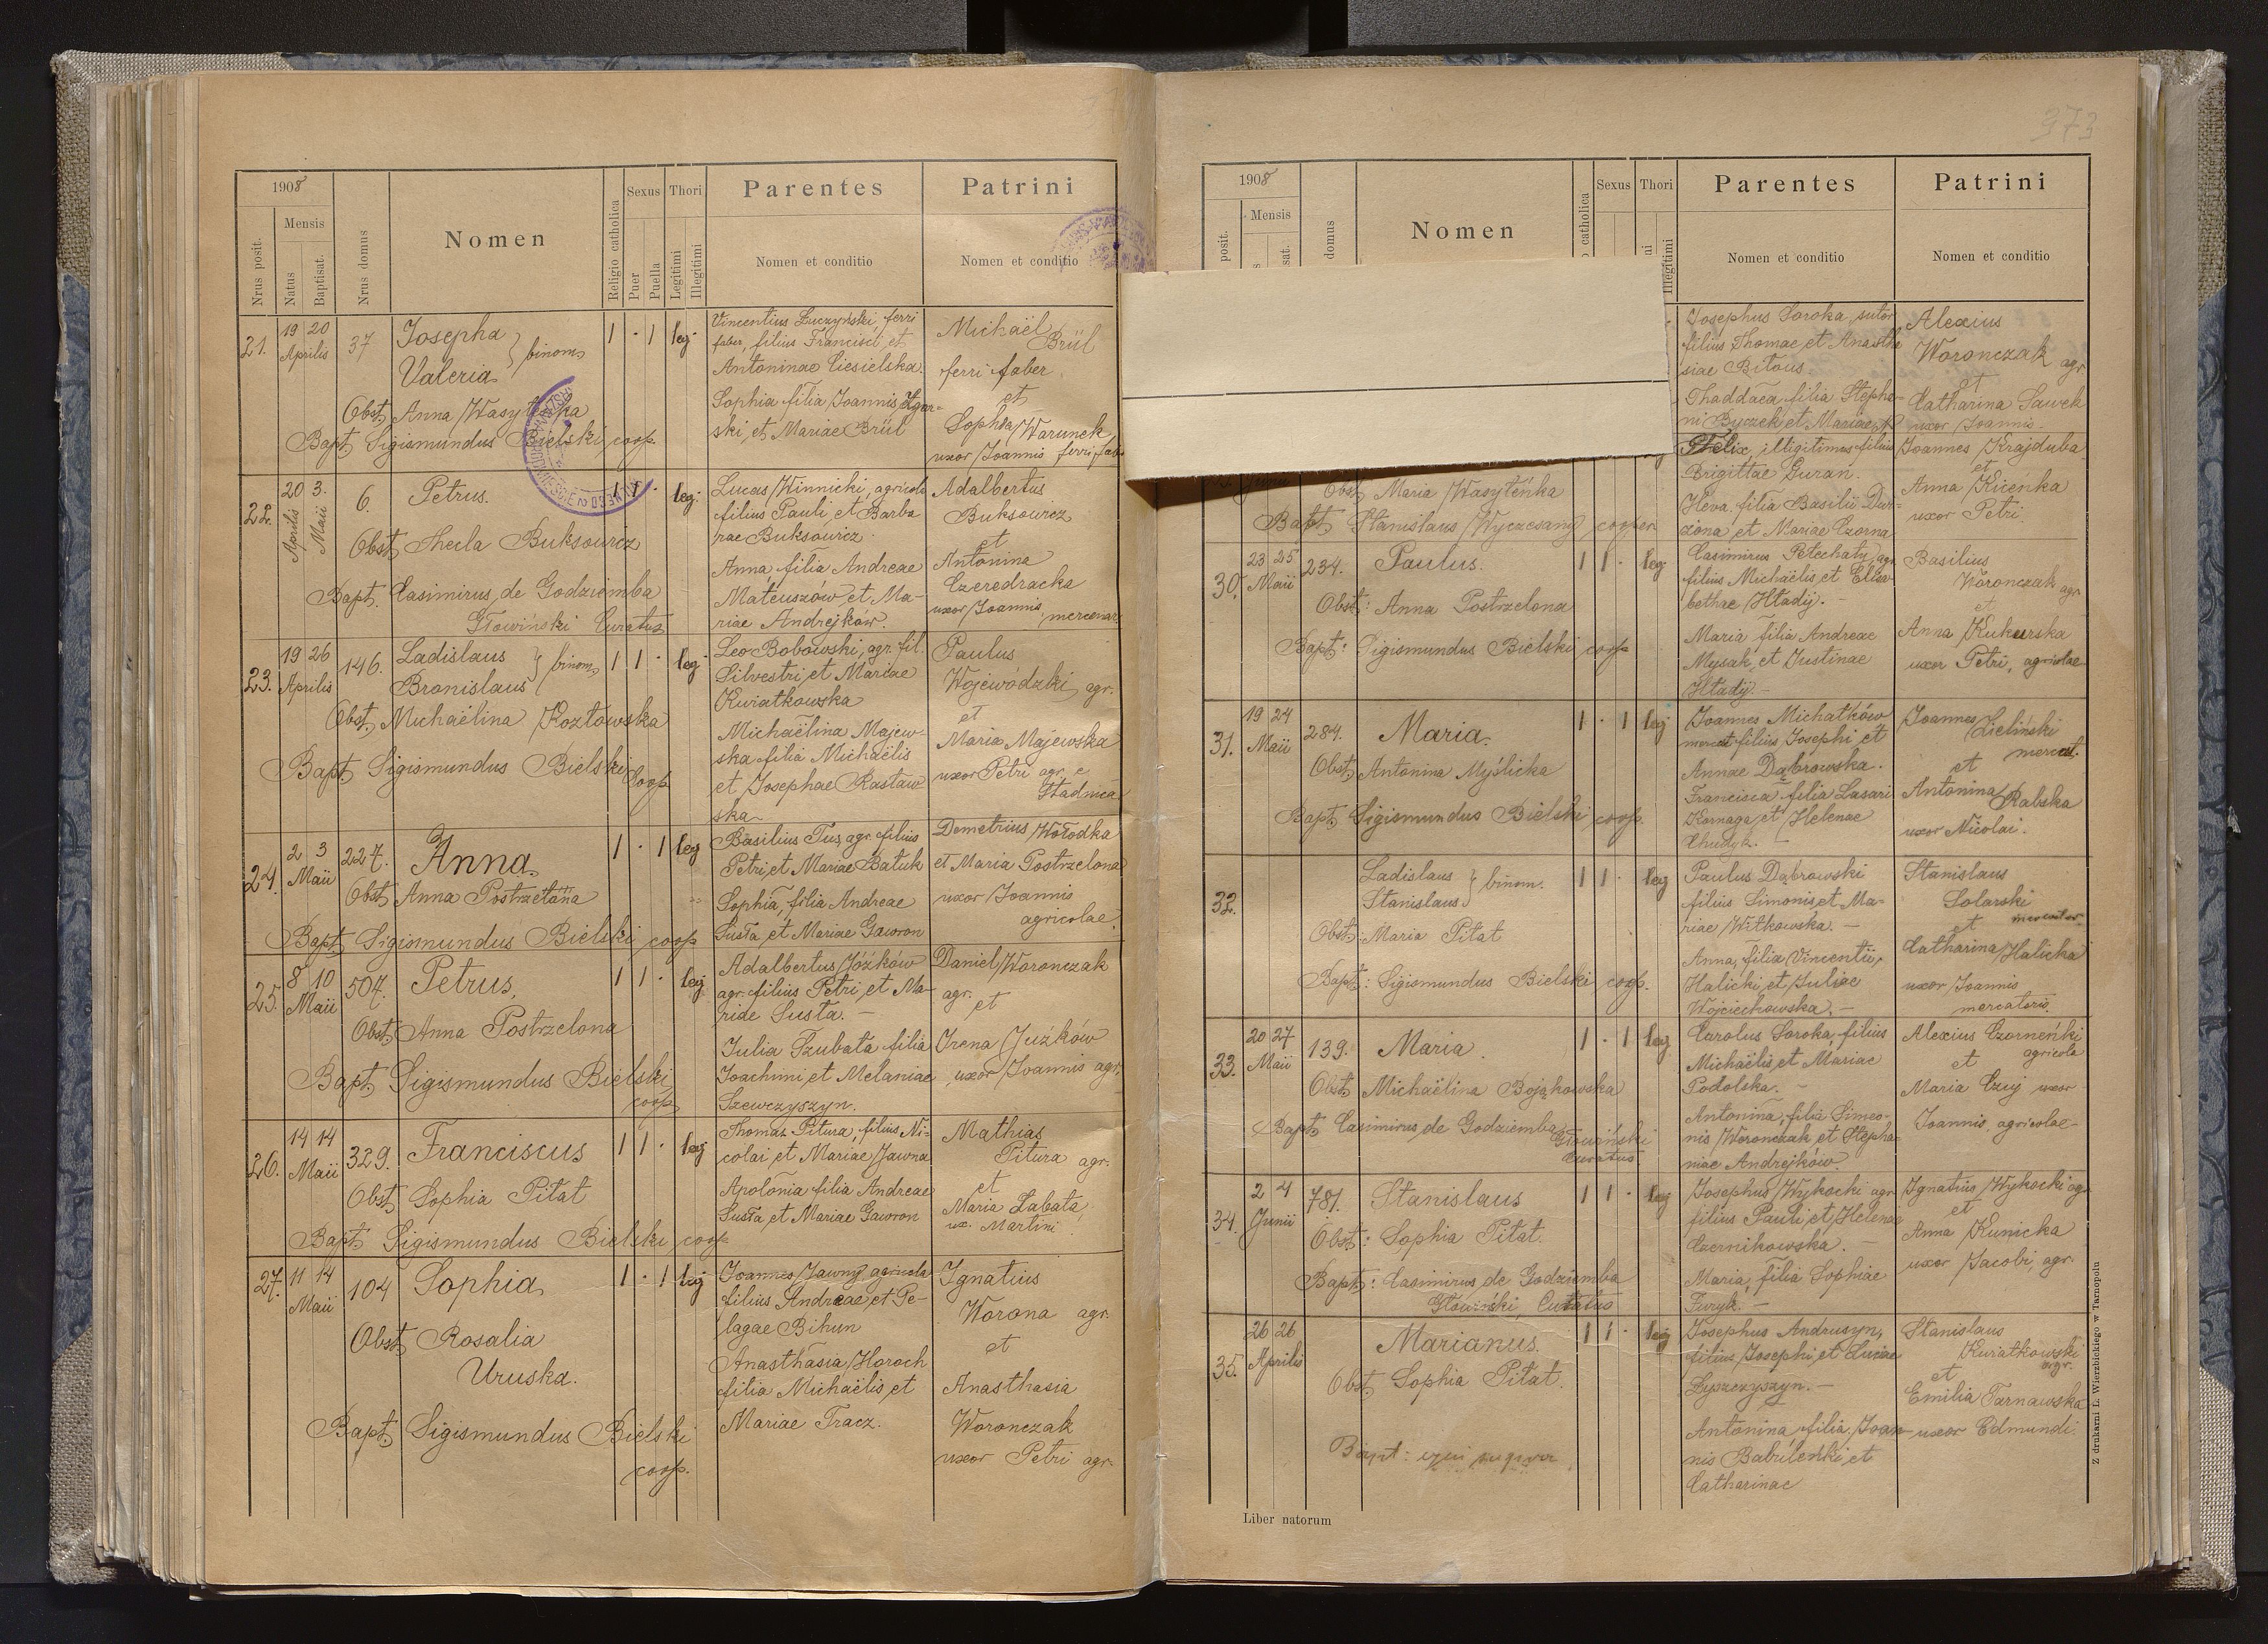 1908
Nrus posit.
Mensis
Natus
Baptisat.
Nrus domus
Nomen
Religio catholica
Sexus
Puer
Puella
Thori
Legitimi
Illegitimi
Parentes
Nomen et conditio
Patrini
Nomen et conditio
21.
19 20
Aprilis
37
Josepha
Valeria
binom.
1 · 1 leg
Obst. Anna
Bapt. Sigismundus Bielski, coop.
Vincentius Łuczyński, ferri
faber, filius Francisci et
Antoninae Ciesielska.
Sophia filia Joannis
ski, et Mariae Brül
Michaël
Brül
ferri faber
et
Sophia Warunek
uxor Joannis ferri fabr
22.
20 3.
Aprilis Maii
6.
Petrus.
1 1 · leg.
Obst. Thecla Buksowicz
Bapt. Casimirus de Godziemba
Głowiński Curatus
Lucas Winnicki, agricola
filius Pauli et Barba
rae Buksowicz
Anna filia Andreae
Mateuszów et Ma-
riae Andrejków.
Adalbertus
Buksowicz
et
Antonina
Czeredracka
uxor Joannis, mercenar
23.
19 26
Aprilis
146.
Ladislaus
Bronislaus
binom.
1 1 · leg
Obst. Michaëlina Kozłowska
Bapt. Sigismundus Bielski
coop.
Leo Bobowski, agr. fil.
Silvestri et Mariae
Kwiatkowska
Michaëlina Majew-
ska filia Michaëlis
et Josephae Rastaw
ska
Paulus
Wojewódzki, agr.
et
Maria Majewska
uxor Petri agr. e
24.
2 3
Maii
227.
Anna.
1 · 1 leg
Obst. Anna Postrzelona
Bapt. Sigismundus Bielski, coop
Basilius Tus, agr. filius
Petri, et Mariae Batuk
Sophia, filia Andreae
Susła, et Mariae Gawron
Demetrius Wołodka
et Maria Postrzelona
uxor Joannis
agricolae
25.
8 10
Maii
507.
Petrus,
1 1 · leg
Obst. Anna Postrzelona
Bapt. Sigismundus Bielski
coop.
Adalbertus Józków
agr. filius Petri, et Ma-
riae Susła. —
Julia Szubata filia
Joachimi et Melaniae
Szewczyszyn.
Daniel Woronczak
agr. et
Irena Juzków
uxor Joannis agr.
26.
14 14
Maii
329.
Franciscus
1 1 · leg
Obst. Sophia Pitat
Bapt. Sigismundus Bielski, coop
Thomas Pitura, filius Ni-
colai et Mariae Jawna
Apolonia filia Andreae
Susła et Mariae Gawron
Mathias
Pitura agr.
et
Maria Łabata,
ux. Martini
27.
11 14
Maii
104
Sophia
1 · 1 leg
Obst. Rosalia
Uruska.
Bapt. Sigismundus Bielski
coop.
Joannes Jawny agricola
filius Andreae, et Pe-
lagae Bihun
Anasthasia Horoch
filia Michaëlis et
Mariae Tracz.
Ignatius
Worona agr.
et
Anasthasia
Woronczak
uxor Petri agr.
373
1908
posit.
Mensis
sat.
domus
Nomen
catholica
Sexus
Thori
Illegitimi
Parentes
Nomen et conditio
Patrini
Nomen et conditio
Josephus Soroka, sutor
filius Thomae et Anastha
siae Bitous.
Thaddaea filia Stepha-
ni Byczek et Mariae
Alexius
Woronczak agr
et
Catharina Sawek
uxor Joannis.
Junii
Obst. Maria Wasyteńka
Bapt. Stanislaus Wyczesany cooper
Felix, illigitimus filius
Brigittae Guran.
Heva filia Basilii Dur-
zona et Mariae Czorna
Joannes Krajduba
et
Anna Kiceńka
uxor Petri
30.
23 25
Maii
234.
Paulus.
1 1 · leg
Obst: Anna Postrzelona
Bapt: Sigismundus Bielski coop
Casimirus Petechaty agr.
filius Michaëlis, et Elisa-
bethae Hładij. —
Maria filia Andreae
Mysak, et Justinae
Hładij. —
Basilius
Woronczak agr
et
Anna Kukurska
uxor Petri, agricolae
31.
19 24
Maii
284.
Maria.
1 · 1 leg
Obst. Antonina Myślicka
Bapt. Sigismundus Bielski, coop.
Joannes Michałków
mercat filius Josephi et
Annae Dąbrowska.
Francisca filia Lasari
Karnaga et Helenae
Chudyk. —
Joannes
Zieliński
mercat.
et
Antonina Rabska
uxor Nicolai.
32.
Ladislaus
Stanislaus
binom.
1 1 · leg
Obst: Maria Pitat
Bapt: Sigismundus Bielski, coop.
Paulus Dąbrowski
filius Simonis, et Ma-
riae Witkowska. —
Anna, filia Vincentii,
Halicki, et Juliae
Wojciechowska. —
Stanislaus
Solarski
et mercator
Catharina Halicka
uxor Joannis
mercatoris.
33.
20 27
Maii
139.
Maria.
1 · 1 leg
Obst. Michaëlina Bojakowska
Bapt. Casimirus de Godziemba
Głowiński
Curatus.
Carolus Soroka, filius
Michaëlis, et Mariae
Podolska. —
Antonina, filia Simeo-
nis Woronczak et Stepha
niae Andrejków.
Alexius Czorneńki
et agricola
Maria Czuj uxor
Joannis, agricolae
34.
2 4
Junii
781.
Stanislaus
1 1 · leg
Obst: Sophia Pitat.
Bapt: Casimirus de Godziemba
Głowiński, Curatus
Josephus Wykocki agr
filius Pauli, et Helenae
Czernikowska. —
Maria, filia Sophiae
Furyk. —
Ignatius Wykocki agr
et
Anna Kunicka
uxor Jacobi, agr.
35.
26 26
Aprilis
Marianus.
1 1 · leg
Obst. Sophia Pitat.
Bapt: qui supra
Josephus Andrusyn,
filius Josephi, et Luciae
Łyszczyszyn. —
Antonina filia Joan-
nis Babileńki et
Catharinae
Stanislaus
Kwiatkowski
agr.
et
Emilia Tarnawska
uxor Edmundi.
Liber natorum
Z drukarni L. Wierzbickiego w Tarnopolu